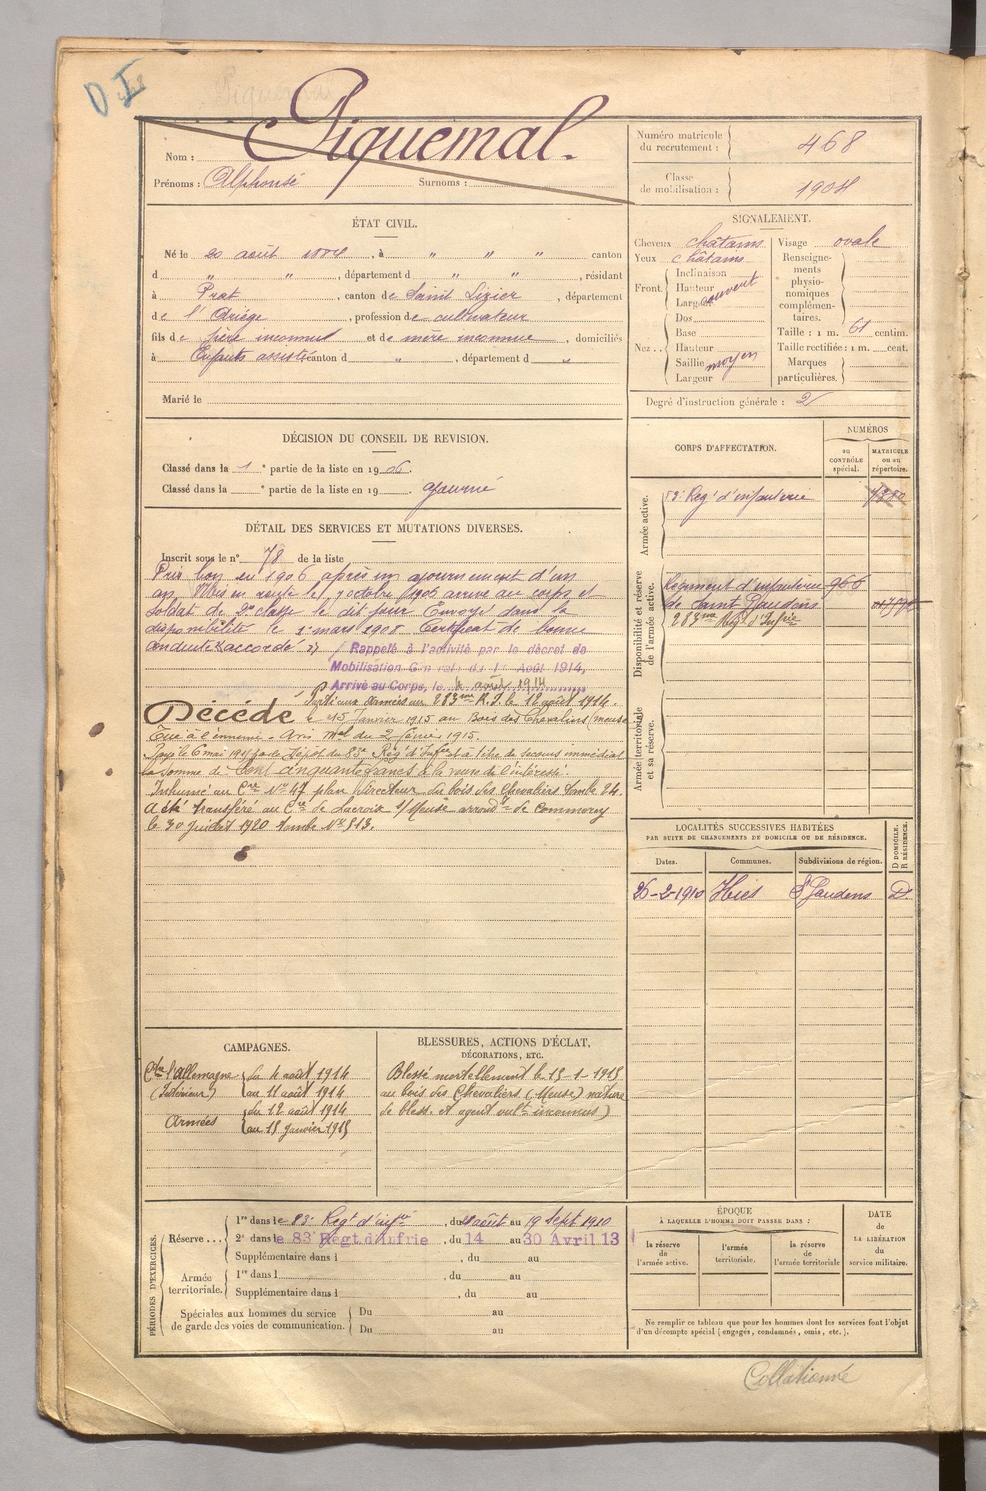 D I
Piquemal.
Nom :
Prénoms : Alphonse Surnoms :
Numéro matricule du recrutement : 468
Classe de mobilisation : 1904
ÉTAT CIVIL.
Né le 20 août 1884, à " " " canton
d " " , département d " " , résidant
à Prat , canton de Saint Lizier , département
de l'Ariège , profession de cultivateur
fils de père inconnu et de mère inconnue , domiciliés
à Enfants assistés canton d " , département d "
Marié le
SIGNALEMENT.
Cheveux châtains Visage ovale
Yeux châtains
Front. Inclinaison
Hauteur
Largeur
couvert
Nez.. Dos
Base
Hauteur
Saillie moyen
Largeur
Renseignements physionomiques complémentaires.
Taille : 1 m. 61 centim.
Taille rectifiée : 1 m. cent.
Marques particulières.
Degré d'instruction générale : 2
DÉCISION DU CONSEIL DE REVISION.
Classé dans la 1e partie de la liste en 1906.
Classé dans la e partie de la liste en 19 . ajourné
DÉTAIL DES SERVICES ET MUTATIONS DIVERSES.
Inscrit sous le n° 78 de la liste
Pris bon en 1906 après un ajournement d'un
an. Mis en route le 7 octobre 1906 arrivé au corps et
soldat de 2e classe le dit jour Envoyé dans la
disponibilité le 1er mars 1908 Certificat de bonne
conduite accordé
Rappelé à l'activité par le décret de
Mobilisation Générale du 1er Août 1914,
Arrivé au Corps, le 4 août 1914
Parti aux armées au 283me R.I. le 12 août 1914.
Décédé le 15 Janvier 1915 au Bois des Chevaliers (Meuse
Tué à l'ennemi - Avis Mel du 2 février 1915.
Payé le 6 mai 1915 par le Dépôt du 83e Reg d'Infie et à titre de secours immédiat
la somme de Cent cinquante francs à la mère de l'intéressé.
Inhumé au Cre N° 47 plan Directeur du bois des Chevaliers tombe 24.
A été transféré au Cre de Lacroix s/Meuse arrondt de Commercy
le 30 juillet 1920 tombe N° 513.
CORPS D'AFFECTATION.
NUMÉROS
au CONTRÔLE spécial.
MATRICULE ou au répertoire.
Armée active.
Reg' d'infanterie
Disponibilité et réserve de l'armée active.
Régiment d'infanterie 966
de Saint Gaudens
283me Reg' d'Infrie
Armée territoriale et sa réserve.
LOCALITÉS SUCCESSIVES HABITÉES
PAR SUITE DE CHANGEMENTS DE DOMICILE OU DE RÉSIDENCE.
D DOMICILE. R RÉSIDENCE.
Dates. Communes. Subdivisions de région.
26-2-1910 St Gaudens D.
CAMPAGNES.
Ctre l'Allemagne
(Intérieur) du 4 août 1914
au 11 août 1914
Armées du 12 août 1914
au 15 janvier 1915
BLESSURES, ACTIONS D'ÉCLAT,
DÉCORATIONS, ETC.
Blessé mortellement le 15-1-1915
au bois des Chevaliers (Meuse) nature
de bless. et agent vult inconnus)
PÉRIODES D'EXERCICES.
Réserve ... 1re dans le 83e Reg' d'infie , du août au 19 Sept 1910
2e dans le 83e Régt d'Infrie , du 14 au 30 Avril 13
Supplémentaire dans l , du au
Armée territoriale. 1re dans l , du au
Supplémentaire dans l , du au
Spéciales aux hommes du service de garde des voies de communication. Du au
Du au
ÉPOQUE
À LAQUELLE L'HOMME DOIT PASSER DANS :
la réserve de l'armée active.
l'armée territoriale.
la réserve de l'armée territoriale
DATE de LA LIBÉRATION du service militaire.
Ne remplir ce tableau que pour les hommes dont les services font l'objet
d'un décompte spécial (engagés, condamnés, omis, etc.).
Collationné